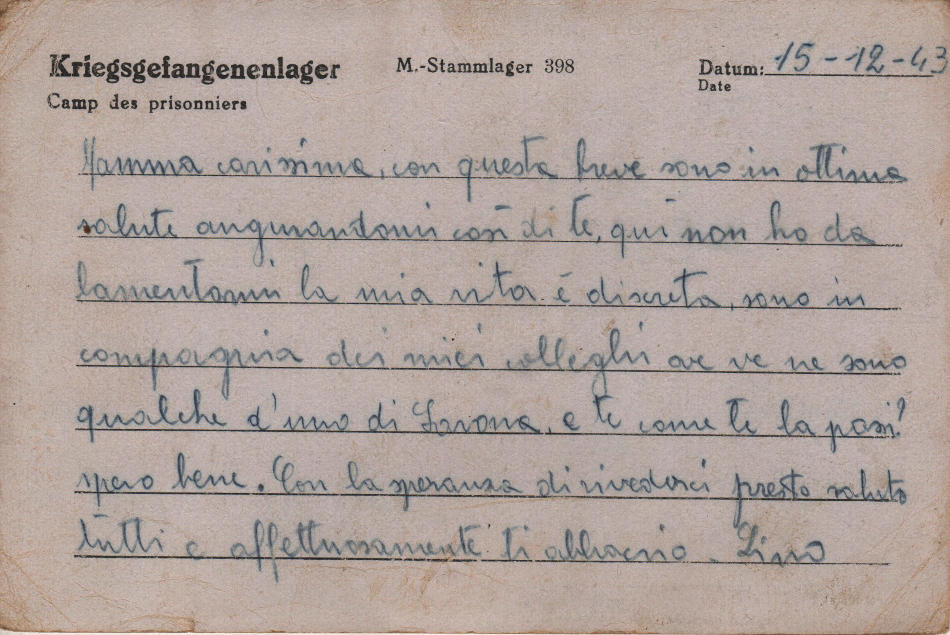 Kriegsgefangenenlager M.-Stammlager 398 Datum: 15-12-43
Camp des prisonniers Date
Mamma carissima, con questa breve sono in ottima
salute augurandomi così di te, qui non ho da
lamentarmi la mia vita è discreta, sono in
compagnia dei miei colleghi ve ne sono
qualche d'uno di Savona, e te come te la passi?
spero bene. Con la speranza di rivederci presto saluto
tutti e affettuosamente ti abbraccio. Lino